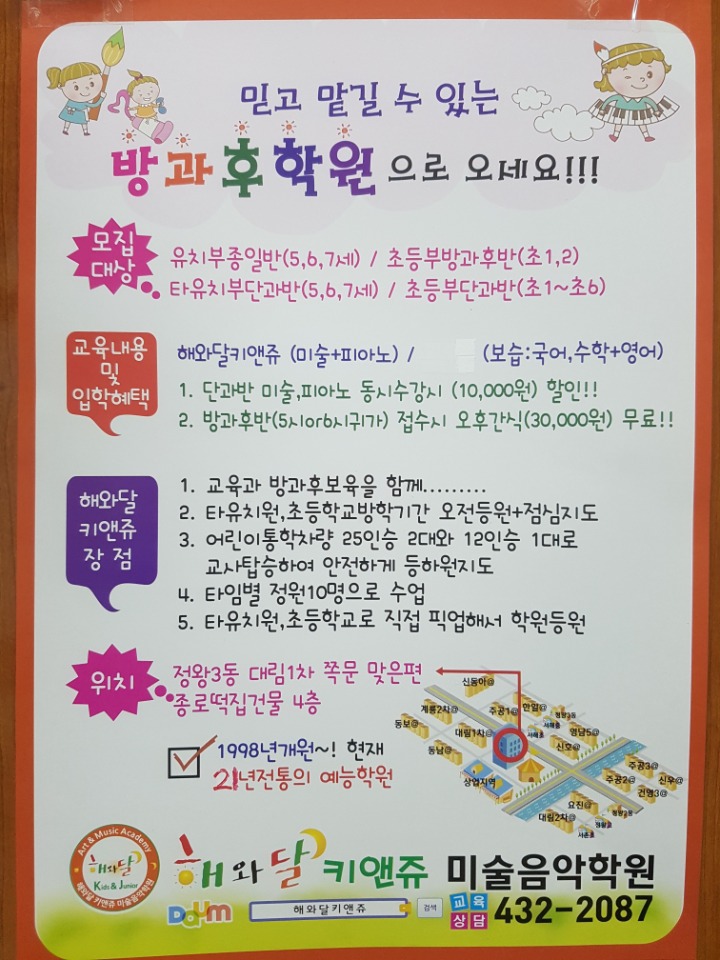 믿고 맡길 수 있는
방과후학원으로 오세요!!!
모집
대상
유치부종일반(5,6,7세) / 초등부방과후반(초1,2)
타유치부단과반(5,6,7세) / 초등부단과반(초1~초6)
교육내용
및
입학혜택
해와달키앤쥬 (미술+피아노) / (보습:국어,수학+영어)
1. 단과반 미술,피아노 동시수강시 (10,000원) 할인!!
2. 방과후반(5시or6시귀가) 접수시 오후간식(30,000원) 무료!!
해와달
키앤쥬
장 점
1. 교육과 방과후보육을 함께.........
2. 타유치원,초등학교방학기간 오전등원+점심지도
3. 어린이통학차량 25인승 2대와 12인승 1대로
교사탑승하여 안전하게 등하원지도
4. 타임별 정원10명으로 수업
5. 타유치원,초등학교로 직접 픽업해서 학원등원
위치
정왕3동 대림1차 쪽문 맞은편
종로떡집건물 4층
1998년개원~! 현재
21년전통의 예능학원
신동아@
계룡2차@
주공1@
한일@
동보@
대림1차@
서해초
영남5@
동남@
신호@
상업지역
주공3@
주공2@
신우@
건영3@
요진@
대림2차@
Art & Music Academy
해와달
Kids & Junior
해와달 키앤쥬 미술음악학원
해와달 키앤쥬 미술음악학원
Daum
해와달키앤쥬
검색
교육
상담
432-2087